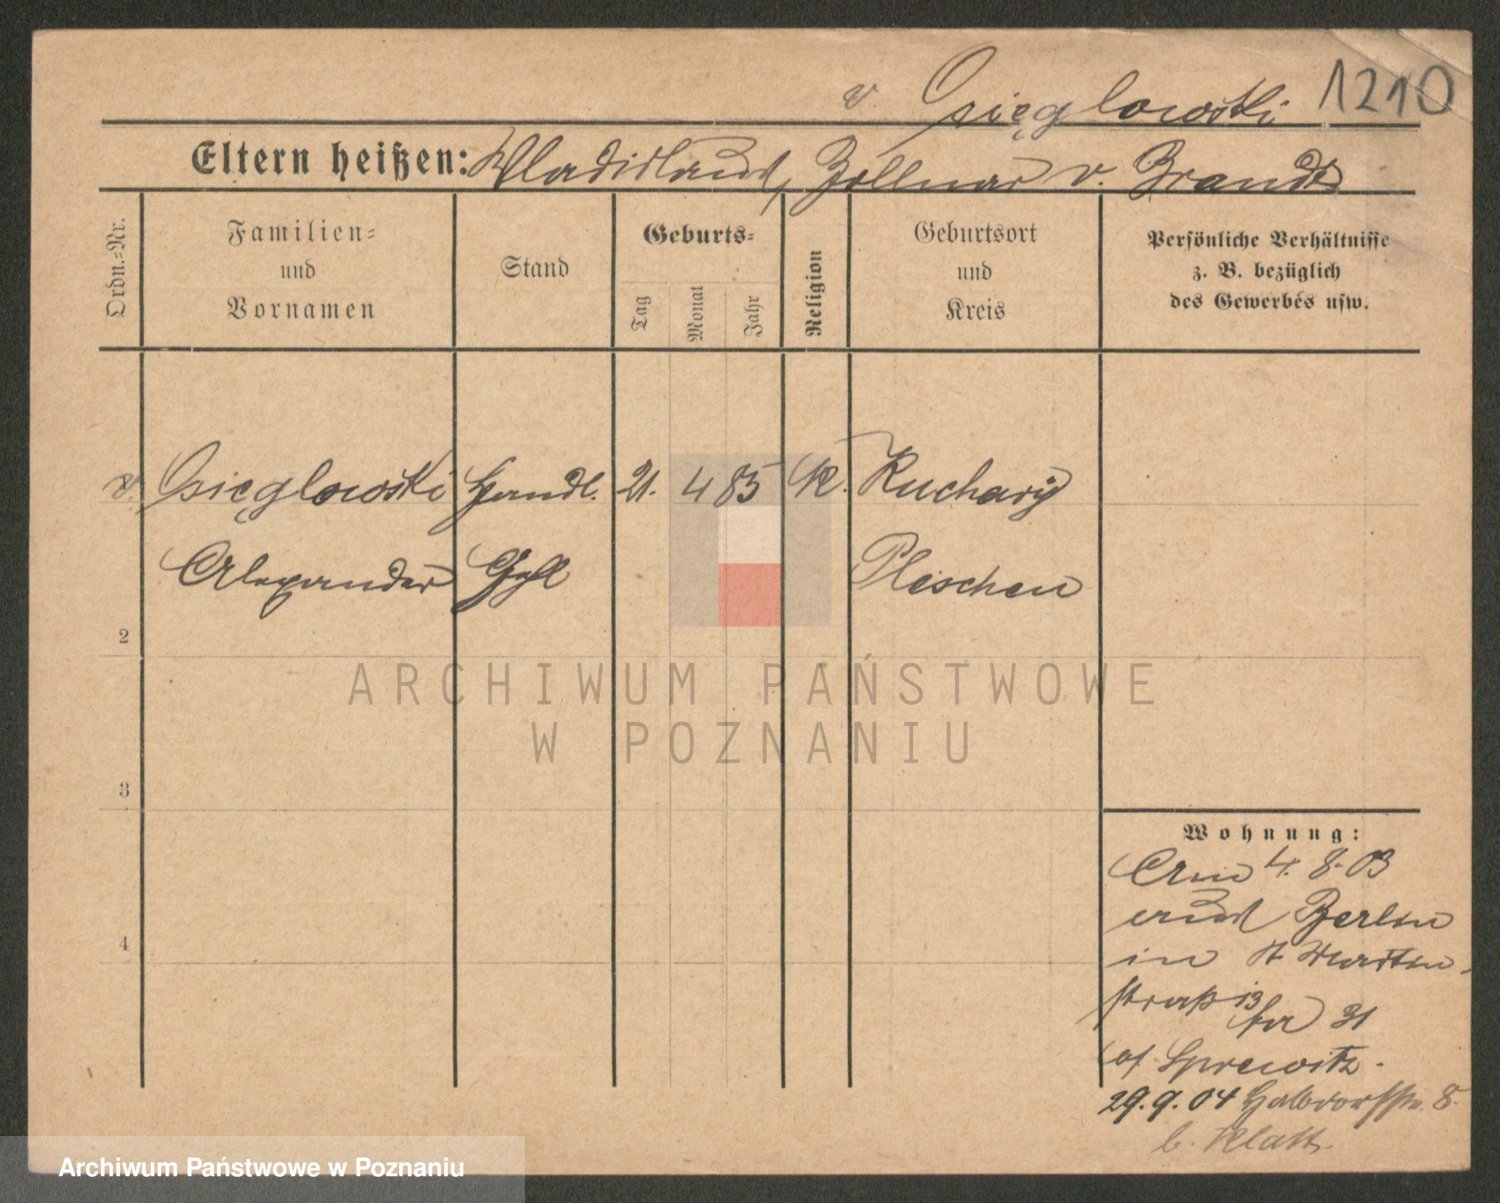 v. Csięglowski 1210
Eltern heißen: Wladislaus, Zollmar v. Brandt
Ordn.-Nr.
Familien-
und
Vornamen
Stand
Geburts-
Tag
Monat
Jahr
Religion
Geburtsort
und
Kreis
Persönliche Verhältnisse
z. B. bezüglich
des Gewerbes usw.
v. Csięglowski Handl. 21. 4 85 K. Kuchary
Alexander Gehl Pleschen
2
3
4
ARCHIWUM PAŃSTWOWE
W POZNANIU
Wohnung:
Am 4. 8. 03
aus Berlin
in St Martin-
straße 13
31
29. 9. 04 Halbdorfstr. 8
b. Klatt
Archiwum Państwowe w Poznaniu